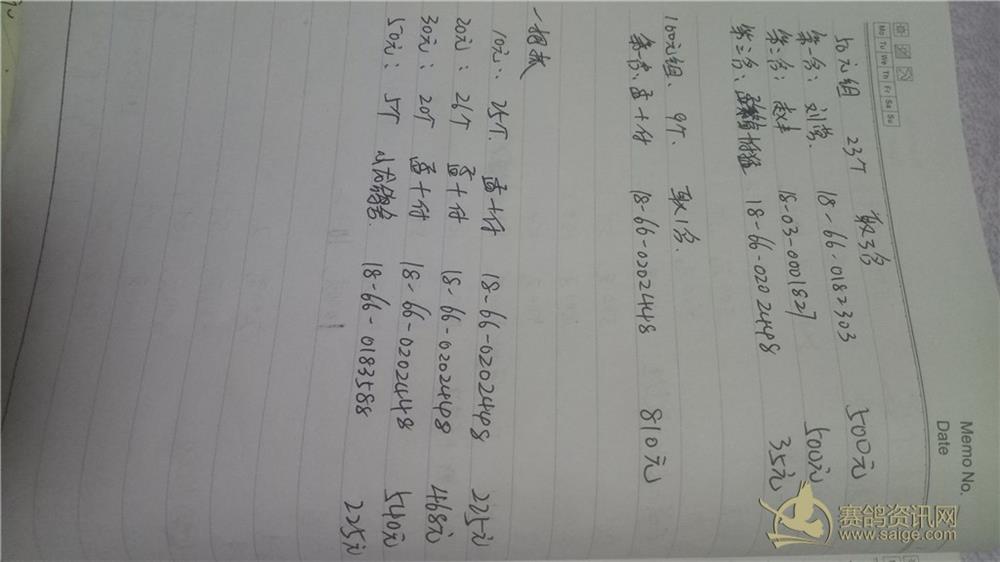 Memo No.
Date
Mo Tu We Th Fr Sa Su
50元组 23个 取3名
第一名：刘营 18-66-0182303 500元
第二名：赵丰 18-03-0001827 500元
第三名： 18-66-0202448 35元
100元组、9个 取1名
第一名：孟+付 18-66-0202448 810元
一招报
10元： 25个 孟+付 18-66-0202448 225元
20元： 26个 孟+付 18-66-0202448 468元
30元： 20个 孟+付 18-66-0202448 540元
50元： 5个 18-66-0183588 225元
赛鸽资讯网
www.saige.com